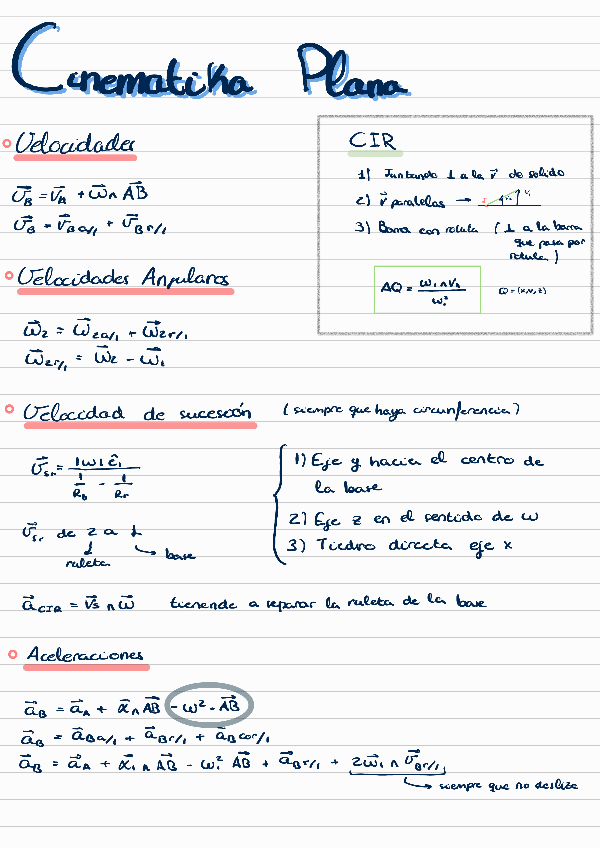 Cinematika Plana
Velocidades
v⃗_B = v⃗_A + ω⃗ ∧ AB⃗
v⃗_B = v⃗_Ba/1 + v⃗_Br/1
CIR
1) Juntando ⊥ a la v⃗ de solido
2) v⃗ paralelas →
3) Barra con rotula ( ⊥ a la barra
que pasa por
rotula )
AQ = ω₁ ∧ v_A / ω₁²
Q = (x, y, z)
Velocidades Angulares
ω⃗₂ = ω⃗₂a/1 + ω⃗₂r/1
ω⃗₂r/1 = ω⃗₂ - ω⃗₁
Velocidad de sucesión (siempre que haya circunferencia)
v⃗_sr = |ω| ê₁ / (1/R_b - 1/R_r)
v⃗_sr de 2 a 1
ruleta
base
1) Eje y hacia el centro de
la base
2) Eje z en el sentido de ω
3) Tiedro directa eje x
a⃗_CIR = v⃗s ∧ ω⃗ tienende a separar la ruleta de la base
Aceleraciones
a⃗_B = a⃗_A + α⃗ ∧ AB⃗ - ω² · AB⃗
a⃗_B = a⃗_Ba/1 + a⃗_Br/1 + a⃗_Bcor/1
a⃗_B = a⃗_A + α⃗₁ ∧ AB⃗ - ω₁² AB⃗ + a⃗_Br/1 + 2ω⃗₁ ∧ v⃗_Br/1
siempre que no deslize